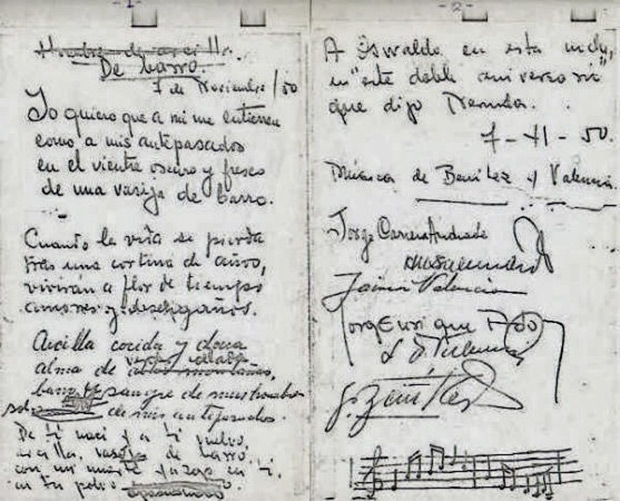 -1-
Hombre de arcilla.
De barro.
7 de Noviembre/50
Yo quiero que a mi me entierren
como a mis antepasados
en el vientre oscuro y fresco
de una vasija de barro.
Cuando la vida se pierda
tras una cortina de años,
vivirán a flor de tiempo
amores y desengaños.
Arcilla cocida y dura
alma de verdes collados
barro y sangre de mis hombres
sol de mis antepasados.
De ti nací y a ti vuelvo,
arcilla, vasija de barro.
con mi muerte yazgo en ti,
en tu polvo
-2-
A Oswaldo en esta noche,
en "este doble aniversario"
que dijo Neruda.
7-11-50.
Música de Benítez y Valencia.
Jorge Carrera Andrade
Jaime Valencia
Jorge Enrique Adoum
G. Benítez